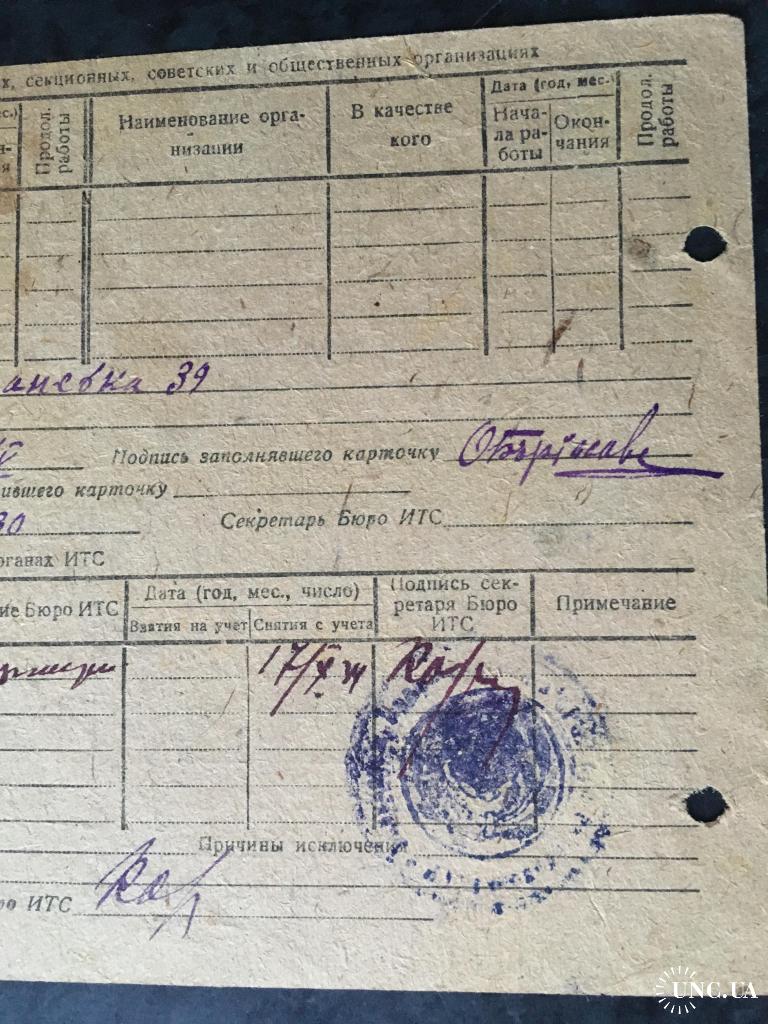 х, секционных, советских и общественных организациях
Продол. работы
Наименование орга-
низации
В качестве
кого
Дата (год, мес.)
Нача-
ла ра-
боты
Окон-
чания
Продол.
работы
аневка 39
Подпись заполнявшего карточку
ившего карточку
30
Секретарь Бюро ИТС
рганах ИТС
ие Бюро ИТС
Дата (год, мес., число)
Взятия на учет
Снятия с учета
Подпись сек-
ретаря Бюро
ИТС
Примечание
17/X
Причины исключения
ро ИТС
UNC.UA